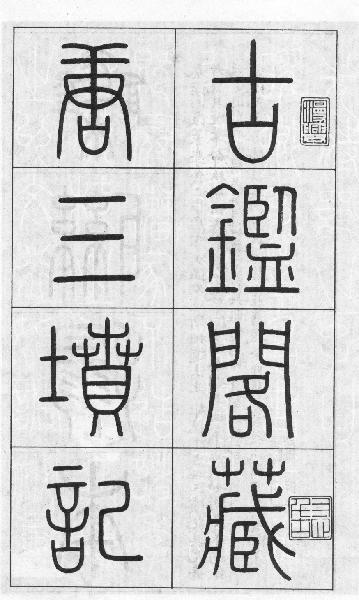 古鑑閣藏
唐三墳記